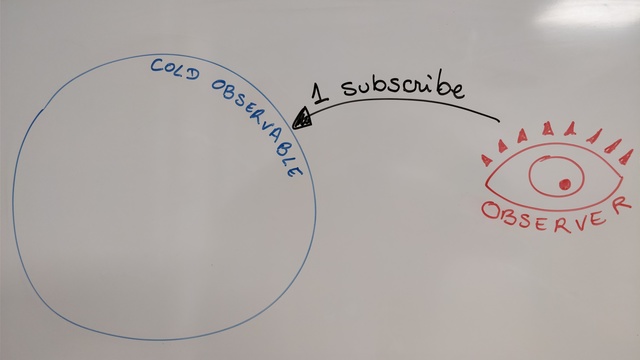 COLD OBSERVABLE
1 subscribe
OBSERVER